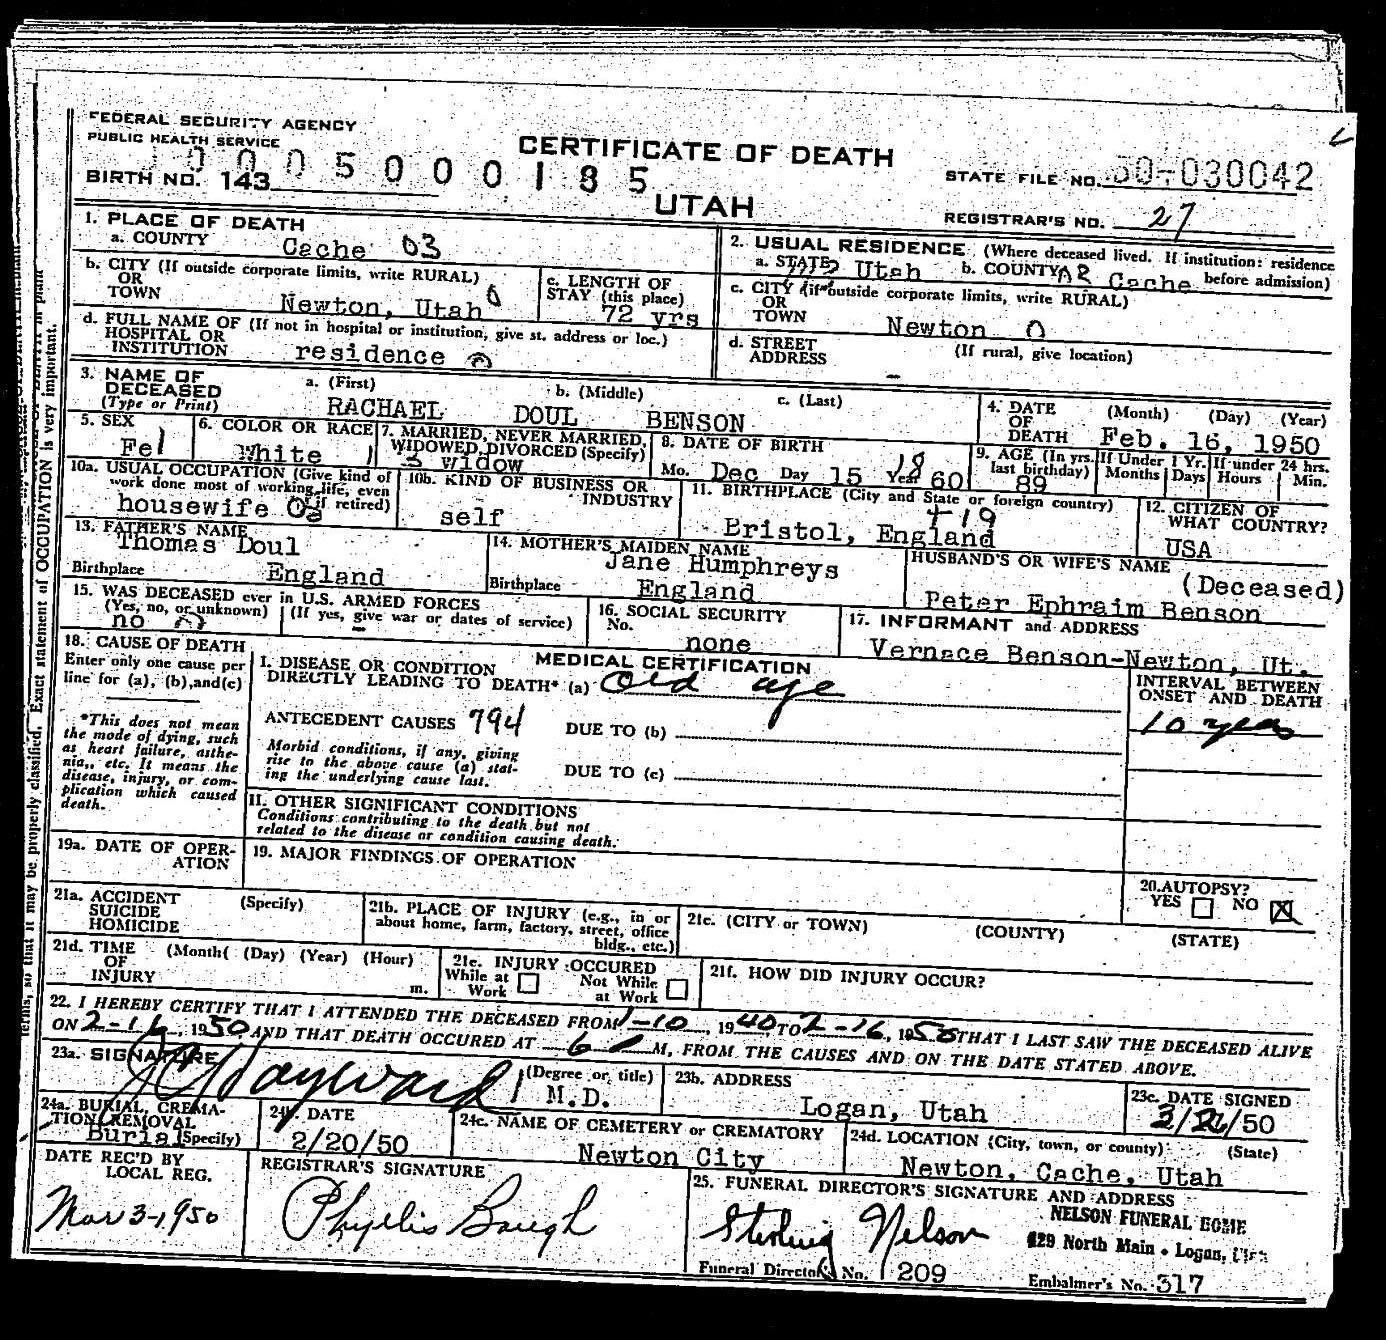 FEDERAL SECURITY AGENCY
PUBLIC HEALTH SERVICE
CERTIFICATE OF DEATH
0005000185
BIRTH NO. 143
UTAH
STATE FILE NO. 50-030042
REGISTRAR'S NO. 27
1. PLACE OF DEATH
a. COUNTY Cache 03
2. USUAL RESIDENCE (Where deceased lived. If institution: residence before admission)
a. STATE Utah b. COUNTY Cache
b. CITY (If outside corporate limits, write RURAL)
OR
TOWN Newton, Utah
c. LENGTH OF
STAY (this place)
72 yrs
c. CITY (if outside corporate limits, write RURAL)
OR
TOWN Newton
d. FULL NAME OF (If not in hospital or institution, give st. address or loc.)
HOSPITAL OR
INSTITUTION residence
d. STREET
ADDRESS
(If rural, give location)
-
3. NAME OF
DECEASED
(Type or Print)
a. (First) b. (Middle) c. (Last)
RACHAEL DOUL BENSON
4. DATE
OF
DEATH
(Month) (Day) (Year)
Feb. 16, 1950
5. SEX
Fe 1
6. COLOR OR RACE
White 1
7. MARRIED, NEVER MARRIED,
WIDOWED, DIVORCED (Specify)
3 widow
8. DATE OF BIRTH
Mo. Dec Day 15 Year 1860
9. AGE (In yrs. last birthday)
89
If Under 1 Yr.
Months Days
If under 24 hrs.
Hours Min.
10a. USUAL OCCUPATION (Give kind of
work done most of working life, even
if retired)
housewife
10b. KIND OF BUSINESS OR
INDUSTRY
self
11. BIRTHPLACE (City and State or foreign country)
+19
Bristol, England
12. CITIZEN OF
WHAT COUNTRY?
USA
13. FATHER'S NAME
Thomas Doul
Birthplace England
14. MOTHER'S MAIDEN NAME
Jane Humphreys
Birthplace England
HUSBAND'S OR WIFE'S NAME
(Deceased)
Peter Ephraim Benson
15. WAS DECEASED ever in U.S. ARMED FORCES
(Yes, no, or unknown) (If yes, give war or dates of service)
no -
16. SOCIAL SECURITY
No.
none
17. INFORMANT and ADDRESS
Vernace Benson-Newton, Ut.
18. CAUSE OF DEATH
Enter only one cause per
line for (a), (b),and(c)
*This does not mean
the mode of dying, such
as heart failure, asthe-
nia,, etc. It means the
disease, injury, or com-
plication which caused
death.
MEDICAL CERTIFICATION
I. DISEASE OR CONDITION
DIRECTLY LEADING TO DEATH* (a) Old age
ANTECEDENT CAUSES 794
DUE TO (b)
Morbid conditions, if any, giving
rise to the above cause (a) stat-
ing the underlying cause last.
DUE TO (c)
INTERVAL BETWEEN
ONSET AND DEATH
10 years
II. OTHER SIGNIFICANT CONDITIONS
Conditions contributing to the death but not
related to the disease or condition causing death.
19a. DATE OF OPER-
ATION
19. MAJOR FINDINGS OF OPERATION
20. AUTOPSY?
YES NO X
21a. ACCIDENT
SUICIDE
HOMICIDE
(Specify)
21b. PLACE OF INJURY (e.g., in or
about home, farm, factory, street, office
bldg., etc.)
21c. (CITY or TOWN) (COUNTY) (STATE)
21d. TIME
OF
INJURY
(Month( (Day) (Year) (Hour)
m.
21e. INJURY OCCURED
While at Work
Not While at Work
21f. HOW DID INJURY OCCUR?
22. I HEREBY CERTIFY THAT I ATTENDED THE DECEASED FROM 1-10, 1940 TO 2-16, 1950 THAT I LAST SAW THE DECEASED ALIVE
ON 2-16, 1950 AND THAT DEATH OCCURED AT 6 M, FROM THE CAUSES AND ON THE DATE STATED ABOVE.
23a. SIGNATURE
Hayward
(Degree or title)
M.D.
23b. ADDRESS
Logan, Utah
23c. DATE SIGNED
/50
24a. BURIAL, CREMA-
TION REMOVAL
Burial (Specify)
24b. DATE
2/20/50
24c. NAME OF CEMETERY or CREMATORY
Newton City
24d. LOCATION (City, town, or county) (State)
Newton, Cache, Utah
DATE REC'D BY
LOCAL REG.
Mar 3-1950
REGISTRAR'S SIGNATURE
Phyllis Baugh
25. FUNERAL DIRECTOR'S SIGNATURE AND ADDRESS
Sterling Nelson
NELSON FUNERAL HOME
North Main • Logan,
Funeral Director No. 209
Embalmer's No. 317
terms, so that it may be properly classified. Exact statement of OCCUPATION is very important.